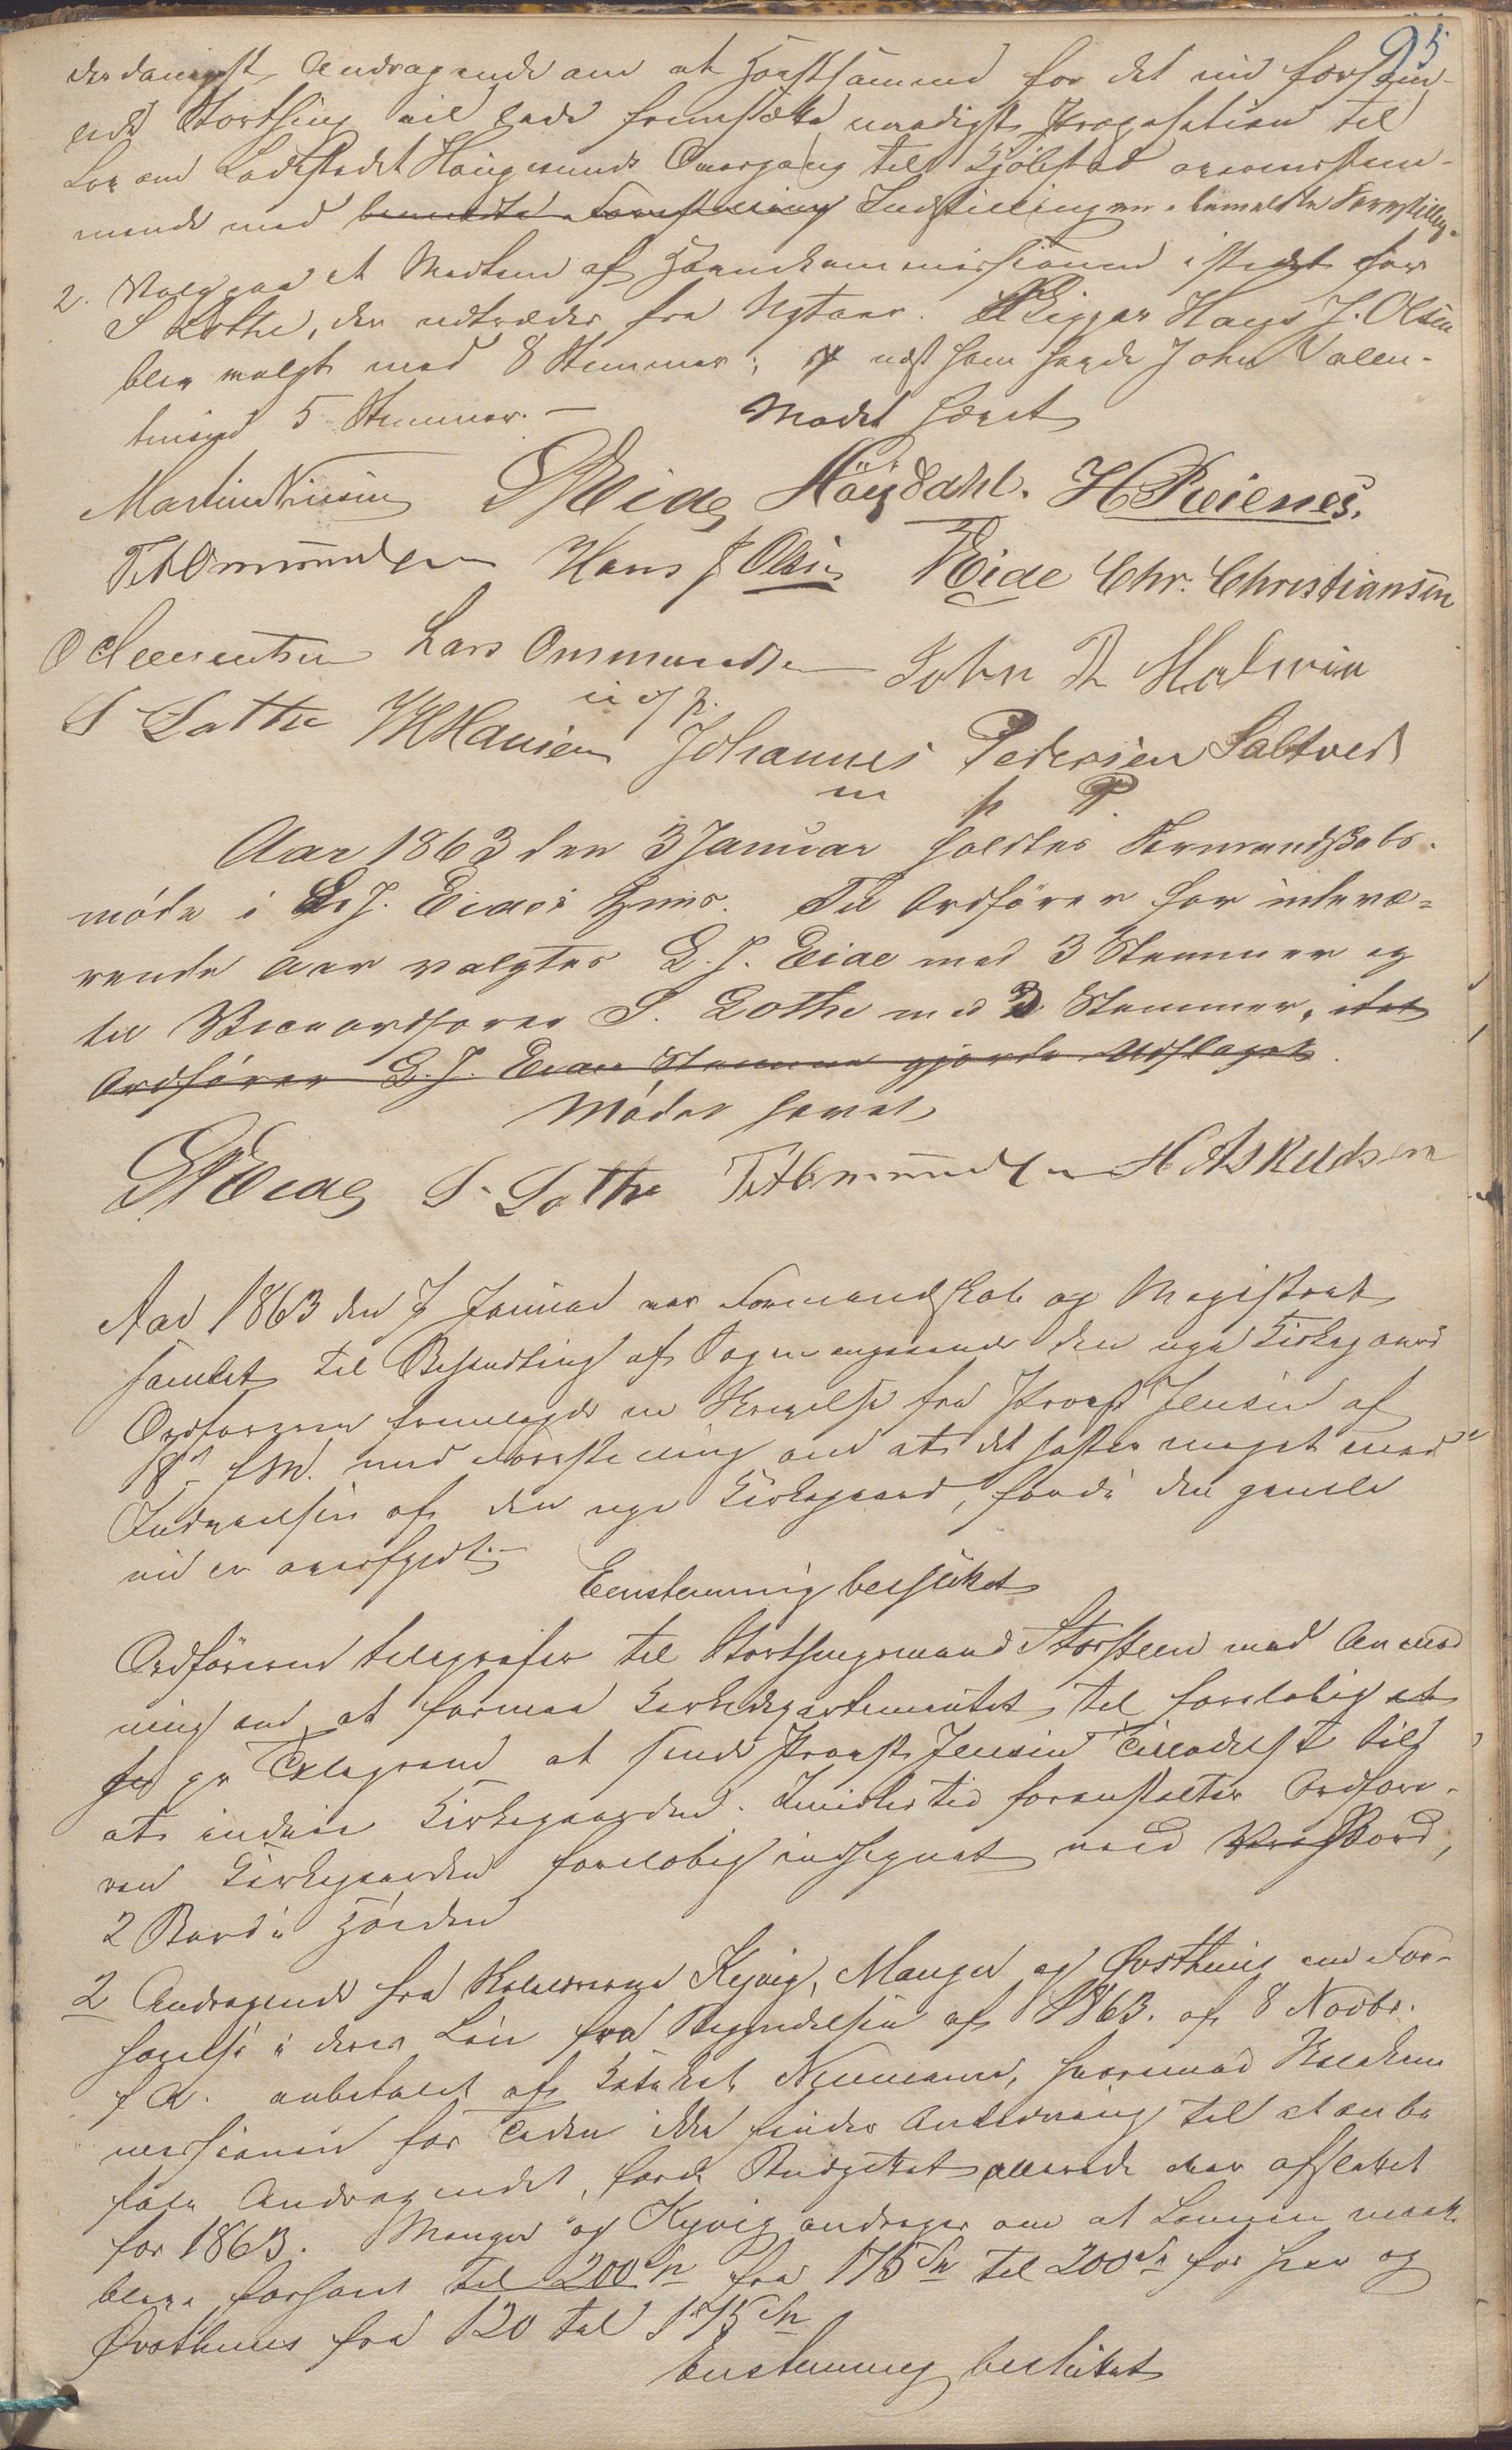 95
derdanigst Andragende om at Høistsamme for det nu forsam-
lede Storthing vil lade fremsætte naadigst Proposition til
Lov om Ladestedet Haugesunds Overgang til Kjøbstad overensstem-
mende med bemeldte Forestilling Indstillingen i bemeldte Forestilling.
2. Valg paa et Medlem af Havnekommissionen istedet for
S Lothe, der udtræder fra Nytaar. Rigger Hans J. Olsen
blev valgt med 8 Stemmer; næst ham havde John Valen-
tinsen 5 Stemmer. — Mødet hævet
Martin Nissen L J Eide Høydahl. H Reienes.
T A Ommundsen Hans J Olsen T Eide Chr. Christiansen
O Clementsen Lars Ommundsen John Malmin
S Lothe Hansen i og p. Johannes Pedersen Saltved
m p P
Aar 1863 den 3 Januar holdtes Formandskabs-
møde i L. J. Eides Huus. Til Ordfører for indevæ-
rende Aar valgtes L. J. Eide med 3 Stemmer og
til Viceordfører S. Lothe med 3 Stemmer, idet
Ordfører L. J. Eides Stemme gjorde Udslaget.
Mødet hævet
L J Eide S. Lothe T A Ommundsen H Askeldsen
Aar 1863 den 7 Januar var Formandskab og Magistrat
samlet til Behandling af Sagen angaaende den nye Kirkegaard
Ordføreren fremlagde en Skrivelse fra Provst Jensen af
18 f.M. med Forestilling om at det haster meget med
Indvielsen af den nye Kirkegaard, fordi den gamle
nu er overfyldt. —
Eenstemmig besluttet
Ordføreren telegraferer til Storthingsmand Storsteen med Anmod
ning om at formaa Kirkedepartementet til foreløbig at
pr Telegram at sende Provst Jensen Tilladelse til
at indvie Kirkegaarden. Imidlertid foranstalter Ordføre-
ren Kirkegaarden foreløbig indhegnet med Bord,
2 Bord i Høiden
2 Andragende fra Skolelærerne Kyvig, Manger og Øvsthuus om For-
høielse i deres Løn fra Begyndelsen af 1863. af 8 Novbr.
f A. anbefalet af Kateket Neumann, hvorimod Skolekom
missionen for Tiden ikke finder Anledning til at anbe
fale Andragendet, fordi Budgettet allerede var afsluttet
for 1863. Manger og Kyvig andrager om at Lønnen maatte
blive forhøiet til 200 Sp fra 175 Sp til 200 Sp for hver og
Øvsthuus fra 120 til 175 Sp
Enstemmig besluttet